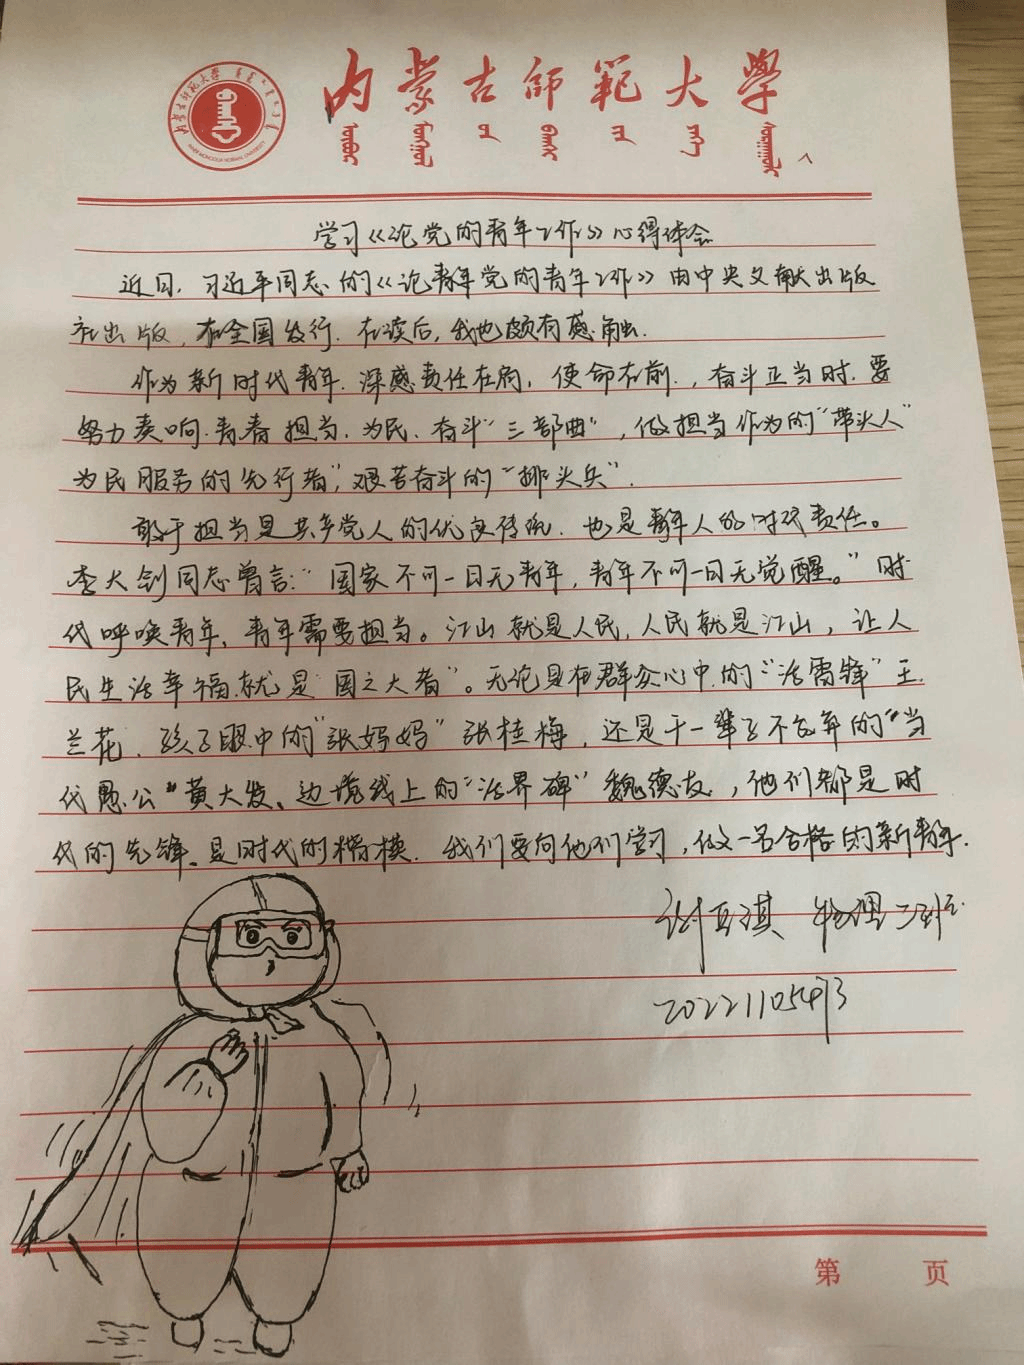 内蒙古師範大學
内蒙古师范大学
INNER MONGOLIA NORMAL UNIVERSITY
学习《论党的青年工作》心得体会
近日，习近平同志的《论青年党的青年工作》由中央文献出版
社出版，在全国发行.在读后，我也颇有感触.
作为新时代青年.深感责任在肩，使命在前.，奋斗正当时.要
努力奏响.青春担当.为民.奋斗“三部曲”，做担当作为的“带头人”
为民服务的先行者”，艰苦奋斗的“排头兵”.
敢于担当是共产党人的优良传统.也是青年人的时代责任。
李大钊同志曾言：“国家不可一日无青年，青年不可一日无觉醒。”时
代呼唤青年、青年需要担当。江山就是人民，人民就是江山，让人
民生活幸福.就是“国之大者”。无论是在群众心中.的“活雷锋”王
兰花.孩子眼中的“张妈妈”张桂梅，还是干一辈子不放弃的“当
代愚公”黄大发、边境线上的“活界碑”魏德友，他们都是时
代的先锋、是时代的楷模.我们要向他们学习，做一名合格的新青年.
物理二班
第 页